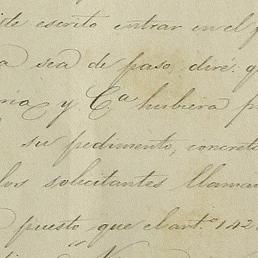 este escrito entrar en el
a sea de paso, diré q
ria y Cª hubiera p
su pedimento, concret
los solicitantes llama
puesto que el artº 142